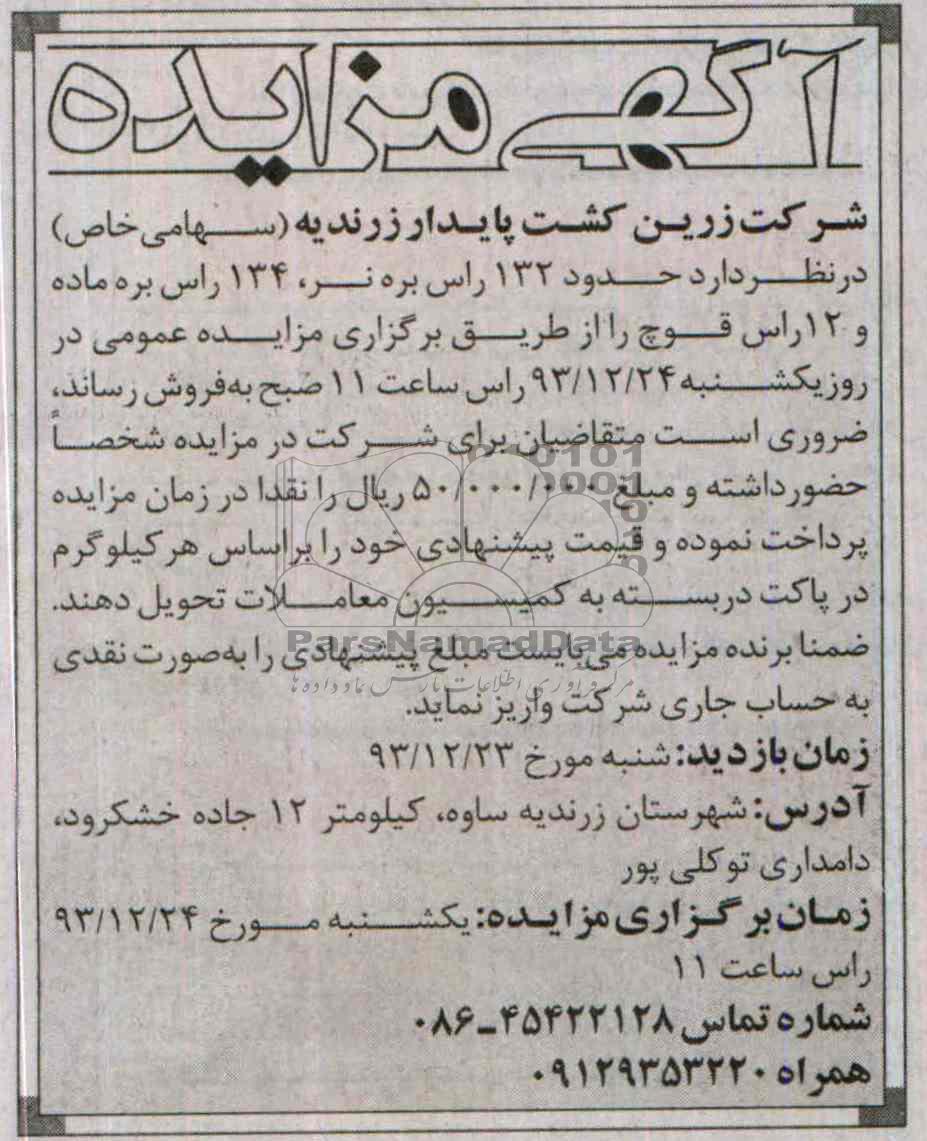 آگهی مزایده
شرکت زرین کشت پایدار زرندیه (سهامی خاص)
درنظردارد حدود ۱۳۲ راس بره نر، ۱۳۴ راس بره ماده
و ۱۲راس قوچ را از طریق برگزاری مزایده عمومی در
روزیکشنبه ۹۳/۱۲/۲۴ راس ساعت ۱۱ صبح به‌فروش رساند،
ضروری است متقاضیان برای شرکت در مزایده شخصاً
حضورداشته و مبلغ ۵۰/۰۰۰/۰۰۰ ریال را نقدا در زمان مزایده
پرداخت نموده و قیمت پیشنهادی خود را براساس هرکیلوگرم
در پاکت دربسته به کمیسیون معاملات تحویل دهند.
ضمنا برنده مزایده می‌بایست مبلغ پیشنهادی را به‌صورت نقدی
به حساب جاری شرکت واریز نماید.
زمان بازدید: شنبه مورخ ۹۳/۱۲/۲۳
آدرس: شهرستان زرندیه ساوه، کیلومتر ۱۲ جاده خشکرود،
دامداری توکلی پور
زمان برگزاری مزایده: یکشنبه مورخ ۹۳/۱۲/۲۴
راس ساعت ۱۱
شماره تماس ۴۵۴۲۲۱۲۸-۰۸۶
همراه ۰۹۱۲۹۳۵۳۲۲۰
ParsNamadData
مرکز فرآوری اطلاعات پارس نماد داده ها